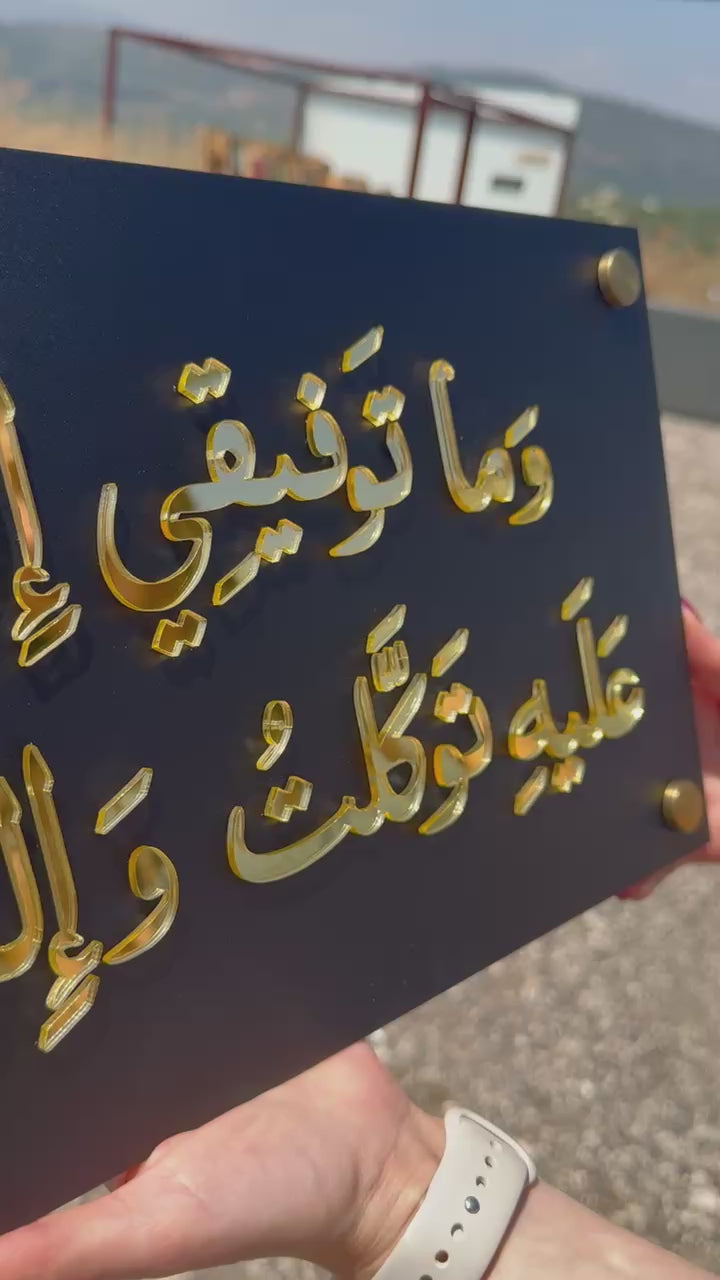 وَما تَوفيقِي إِ
عَلَيهِ تَوَكَّلتُ وَإِل